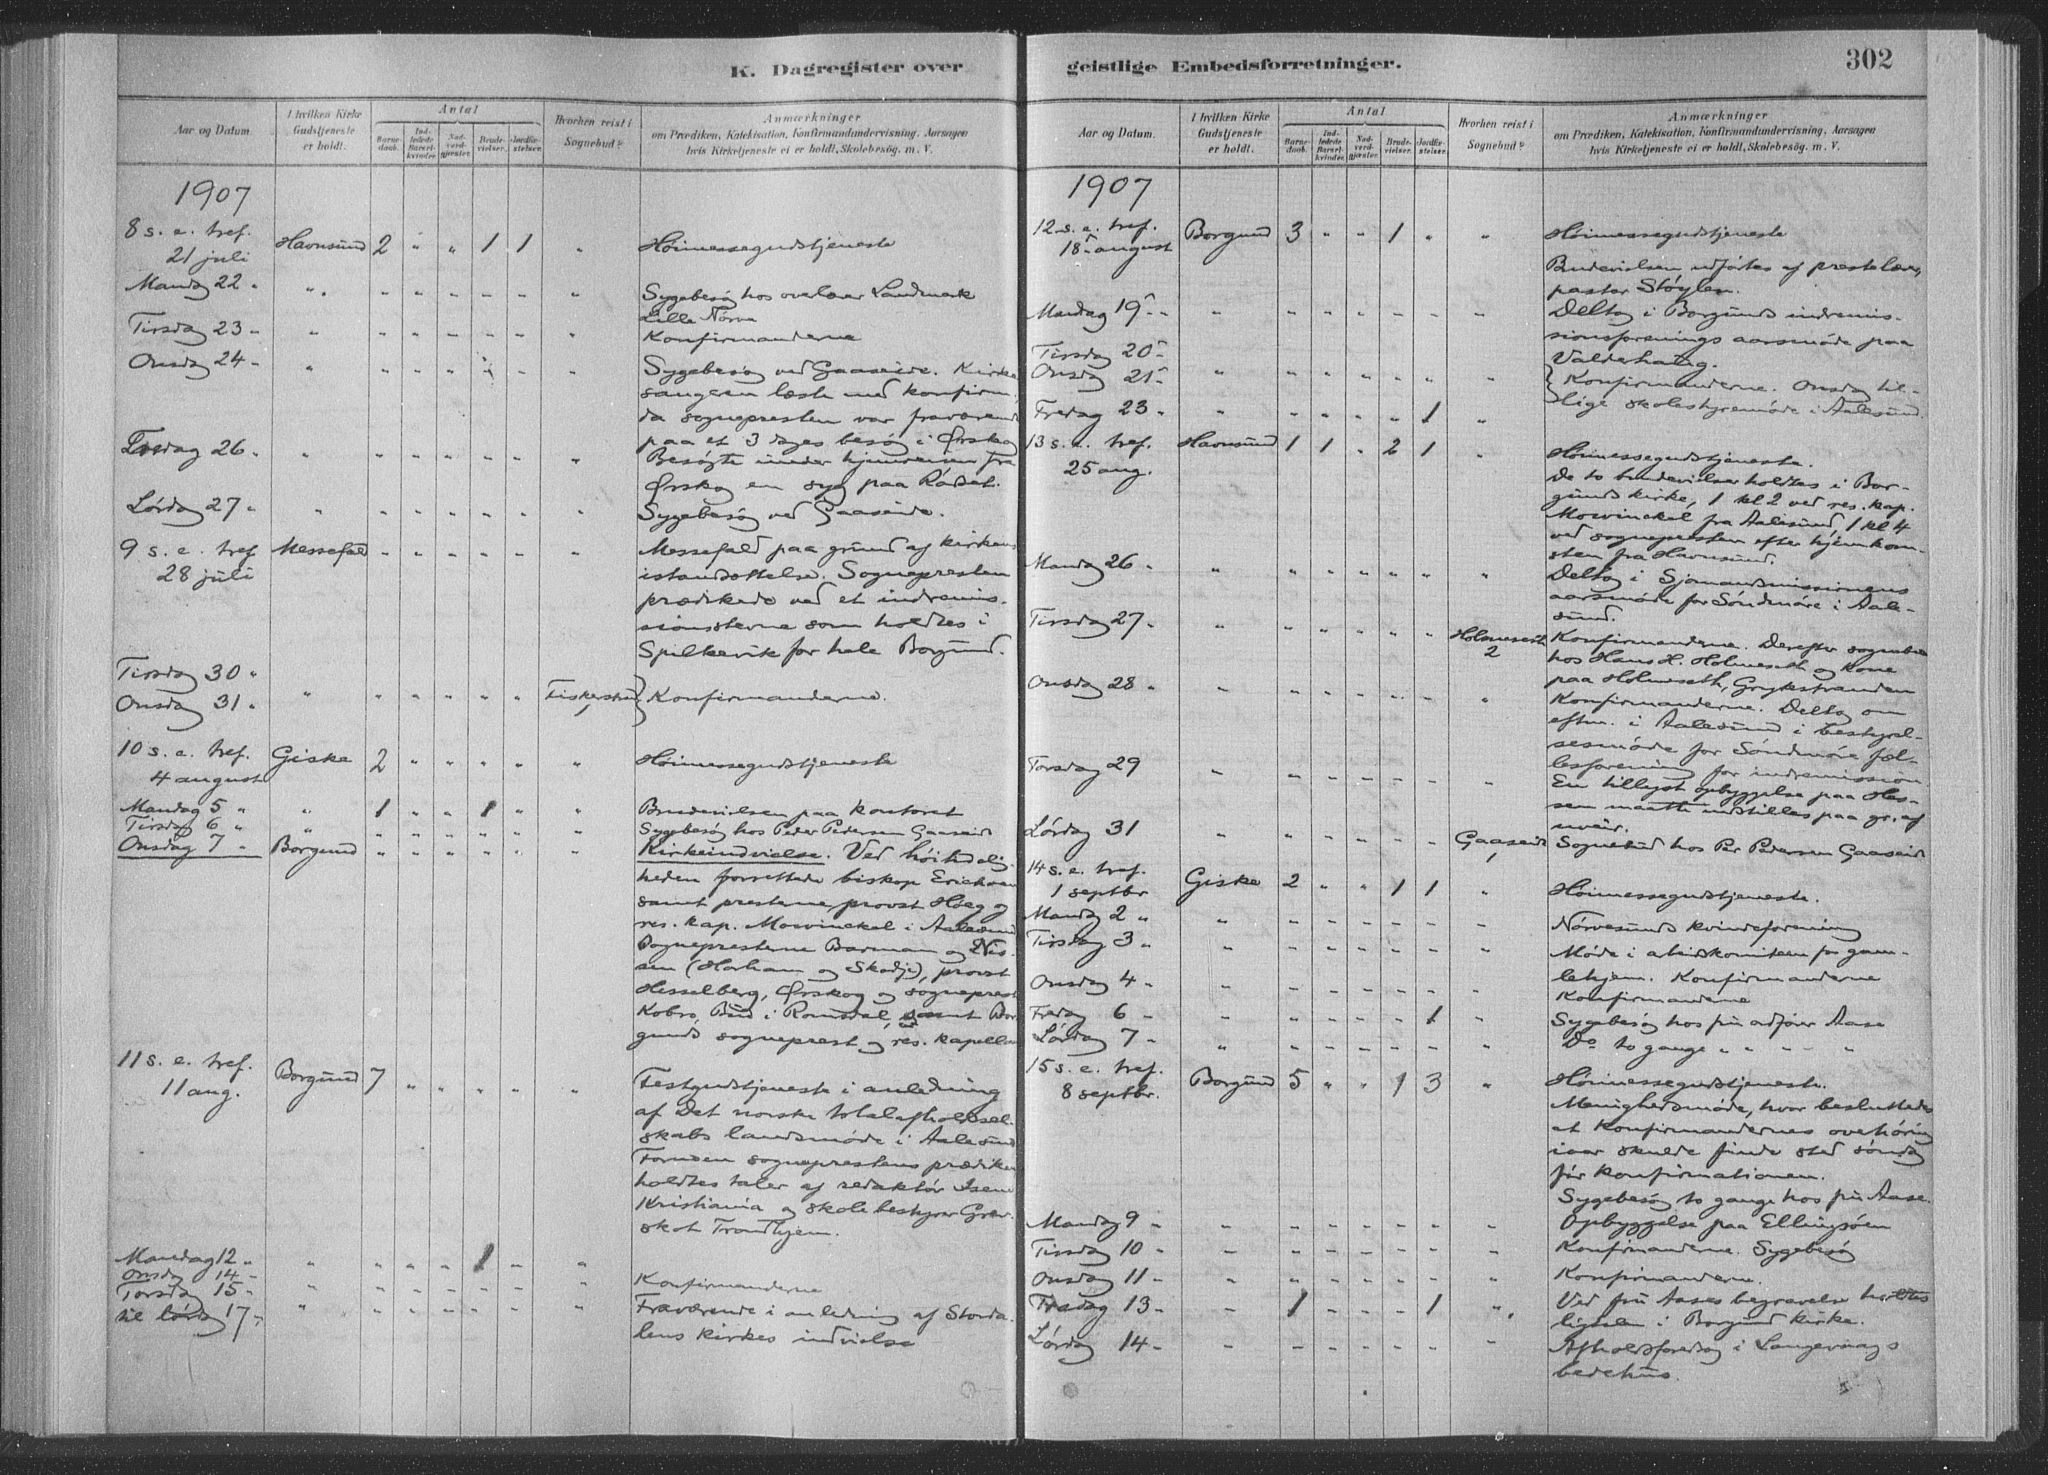 K. Dagregister over
Aar og Datum.
I hvilken Kirke Gudstjeneste er holdt.
Antal
Barnedaab.
Indledede Barselkvinder.
Nadverdgjæster.
Brudevielser.
Jordfæstelser.
Hvorhen reist i Sognebud?
Anmærkninger
om Prædiken, Katekisation, Konfirmandundervisning, Aarsagen
hvis Kirketjeneste ei er holdt, Skolebesøg. m. V.
1907
8 s. e. tref. 21 juli Havnsund 2 " " 1 1 " Høimessegudstjeneste
Mandag 22 " " - - - - - " Sygebesøg hos overlærer Landmark
Lille Nørve
Tirsdag 23 - " - - - - - " Konfirmanderne
Onsdag 24 - " - - - - - " Sygebesøg ved Gaaseide. Kirke
sangeren læste med konfirm.
da sognepresten var fraværende
paa et 3 dages besøg i Ørskog
Fredag 26 - " - - - - - " Besøgte under hjemreisen fra
Ørskog en syg paa Rødset.
Lørdag 27 - " - - - - - " Sygebesøg ved Gaaseide.
9 s. e. tref. 28 juli Messefald - - - - - " Messefald paa grund af kirkens
istandsættelse. Sognepresten
prædikede ved et indremis-
sionsstevne som holdtes i
Spilkevik for hele Borgund.
Tirsdag 30 "
Onsdag 31 " " " - - - - Fiskerstrand 1 } Konfirmanderne.
10 s. e. tref. 4 august Giske 2 " " " " " Høimessegudstjeneste
Mandag 5 " " 1 - - 1 - " Brudevielsen paa kontoret
Tirsdag 6 " " " - - - - " Sygebesøg hos Peder Pedersen Gaaseide
Onsdag 7 " Borgund - - - - - " Kirkeindvielse. Ved høitidelig-
heden forrettede biskop Erichsen
samt presterne, provst Høeg og
res. kap. Mowinckel i Aalesund
Sognepresterne Barman og Nis-
sen (Harham og Skodje), provst
Hesselberg, Ørskog og sogneprest
Kobro, Bud i Romsdal, samt Bor
gunds sogneprest og res. kapellan
11 s. e. tref. 11 aug. Borgund 7 " " " " " Festgudstjeneste i anledning
af Det norske totalafholdssel-
skabs landsmøde i Aalesund
Foruden sogneprestens prædiken
holdtes taler af redaktør Isene
Kristiania og skolebestyrer Grev-
skot Trondhjem.
Mandag 12 " " - - - 1 - "
Onsdag 14 - " - - - - - " Konfirmanderne
Torsdag 15 -
til lørdag 17 - " - - - - - " Fraværende i anledning af Stordа-
lens kirkes indvielse
geistlige Embedsforretninger.
302
Aar og Datum.
I hvilken Kirke Gudstjeneste er holdt.
Antal
Barnedaab.
Indledede Barselkvinder.
Nadverdgjæster.
Brudevielser.
Jordfæstelser.
Hvorhen reist i Sognebud?
Anmærkninger
om Prædiken, Katekisation, Konfirmandundervisning, Aarsagen
hvis Kirketjeneste ei er holdt, Skolebesøg. m. V.
1907
12 s. e. tref. 18 august Borgund 3 " " 1 " " Høimessegudstjeneste
Brudevielsen udførtes af prestelærer,
pastor Støylen.
Mandag 19 - " - - - - - " Deltog i Borgunds indremis-
sionsforenings aarsmøde paa
Valderhaug.
Tirsdag 20 -
Onsdag 21 - " - - - - - " } Konfirmanderne. Onsdag til-
lige skolestyremøde i Aalesund.
Fredag 23 - " - - - - 1 "
13 s. e. tref. 25 aug. Havnsund 1 1 - 2 1 " Høimessegudstjeneste.
De to brudevielser holdtes i Bor-
gunds kirke, 1 kl 2 ved res. kap.
Mowinckel fra Aalesund, 1 kl 4
ved sognepresten efter hjemkom-
sten fra Havnsund.
Mandag 26 - " - - - - - " Deltog i Sjømandsmissionens
aarsmøde for Søndmøre i Aale-
sund.
Tirsdag 27 - " - - - - - Holmeseth 2 Konfirmanderne. Derefter sognebud
hos Hans H. Holmeseth og kone
paa Holmeseth, Grytestranden
Onsdag 28 - " - - - - - " Konfirmanderne. Deltog om
eftm. i Aalesund i bestyrel-
sesmøde for Søndmøre fæl-
lesforening for indremission
Torsdag 29 " - - - - - " En tillyst opbyggelse paa Hes-
sen maatte indstilles paa gr. af
uveir.
Lørdag 31 " - - - - - Gaaseide 1 Sognebud hos Per Pedersen Gaaseide
14 s. e. tref. 1 septbr Giske 2 " " 1 1 " Høimessegudstjeneste.
Mandag 2 " " - - - - - " Nørvesunds kvindeforening
Tirsdag 3 - " - - - - - " Møde i arbeidskomiteen for gam-
lehjem. Konfirmanderne
Onsdag 4 - " - - - - - " Konfirmanderne
Fredag 6 - " - - - - 1 " Sygebesøg hos fru adjunkt Aase
Lørdag 7 - " - - - - - " Do to gange " " " "
15 s. e. tref. 8 septbr. Borgund 5 " " 1 3 " Høimessegudstjeneste.
Menighedsmøde, hvor besluttedes
at Konfirmandernes overhøring
iaar skulde finde sted søndag
før konfirmationen.
Sygebesøg to gange hos fru Aase.
Mandag 9 - " - - - - - " Opbyggelse paa Ellingsøen
Tirsdag 10 - " - - - - - " Konfirmanderne. Sygebesøg
Onsdag 11 - " - - - - - " Konfirmanderne.
Fredag 13 - - 1 - - - 1 " Ved fru Aases begravelse holdtes
ligtalen i Borgund kirke.
Lørdag 14 - - - - - - - " Afholdsforedrag i Langevaags
bedehus.